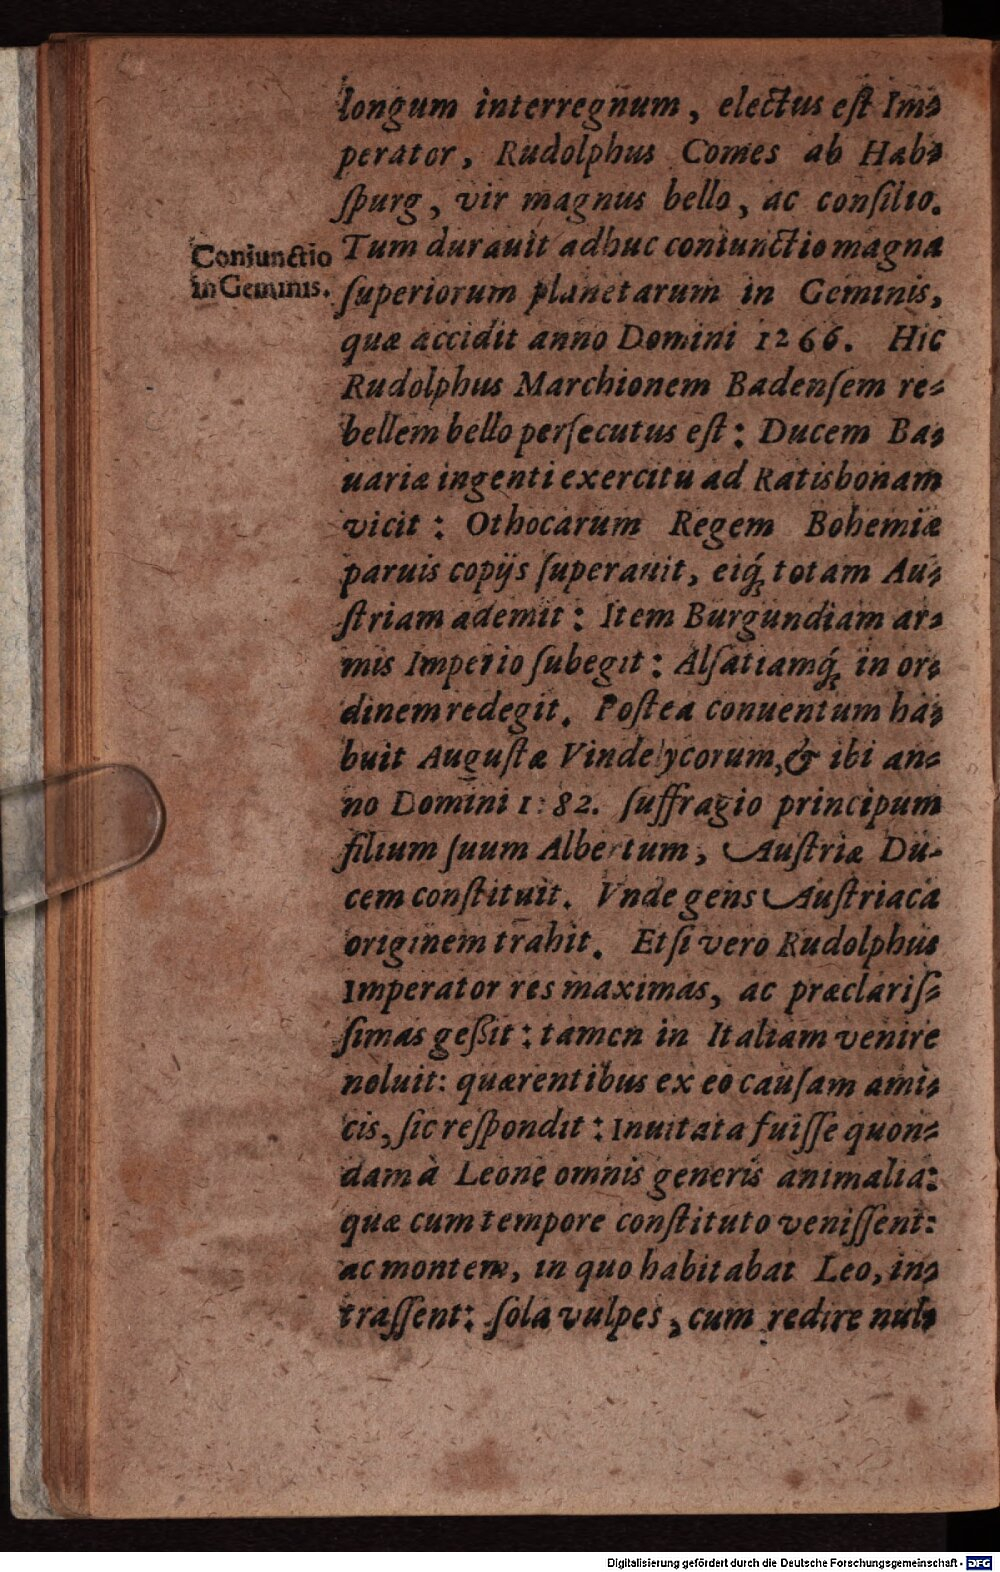 longum interregnum, electus eſt Im⸗
perator, Rudolphus Comes ab Hab⸗
ſpurg, vir magnus bello, ac conſilio.
Coniunctio
in Geminis.
Tum durauit adhuc coniunctio magna
ſuperiorum planetarum in Geminis,
quæ accidit anno Domini 1266. Hic
Rudolphus Marchionem Badenſem re⸗
bellem bello perſecutus eſt: Ducem Ba⸗
uariæ ingenti exercitu ad Ratisbonam
vicit: Othocarum Regem Bohemiæ
paruis copijs ſuperauit, eiq́; totam Au⸗
ſtriam ademit: Item Burgundiam ar⸗
mis Imperio ſubegit: Alſatiamq́; in or⸗
dinem redegit. Poſtea conuentum ha⸗
buit Auguſtæ Vindelycorum, & ibi an⸗
no Domini 1282. ſuffragio principum
filium ſuum Albertum, Auſtriæ Du⸗
cem conſtituit. Vnde gens Auſtriaca
originem trahit. Etſi vero Rudolphus
Imperator res maximas, ac præclariſ⸗
ſimas geßit: tamen in Italiam venire
noluit: quærentibus ex eo cauſam ami⸗
cis, ſic reſpondit: Inuitata fuiſſe quon⸗
dam à Leone omnis generis animalia:
quæ cum tempore conſtituto veniſſent:
ac montem, in quo habitabat Leo, in⸗
traſſent: ſola vulpes, cum redire nul⸗
Digitalisierung gefördert durch die Deutsche Forschungsgemeinschaft - DFG